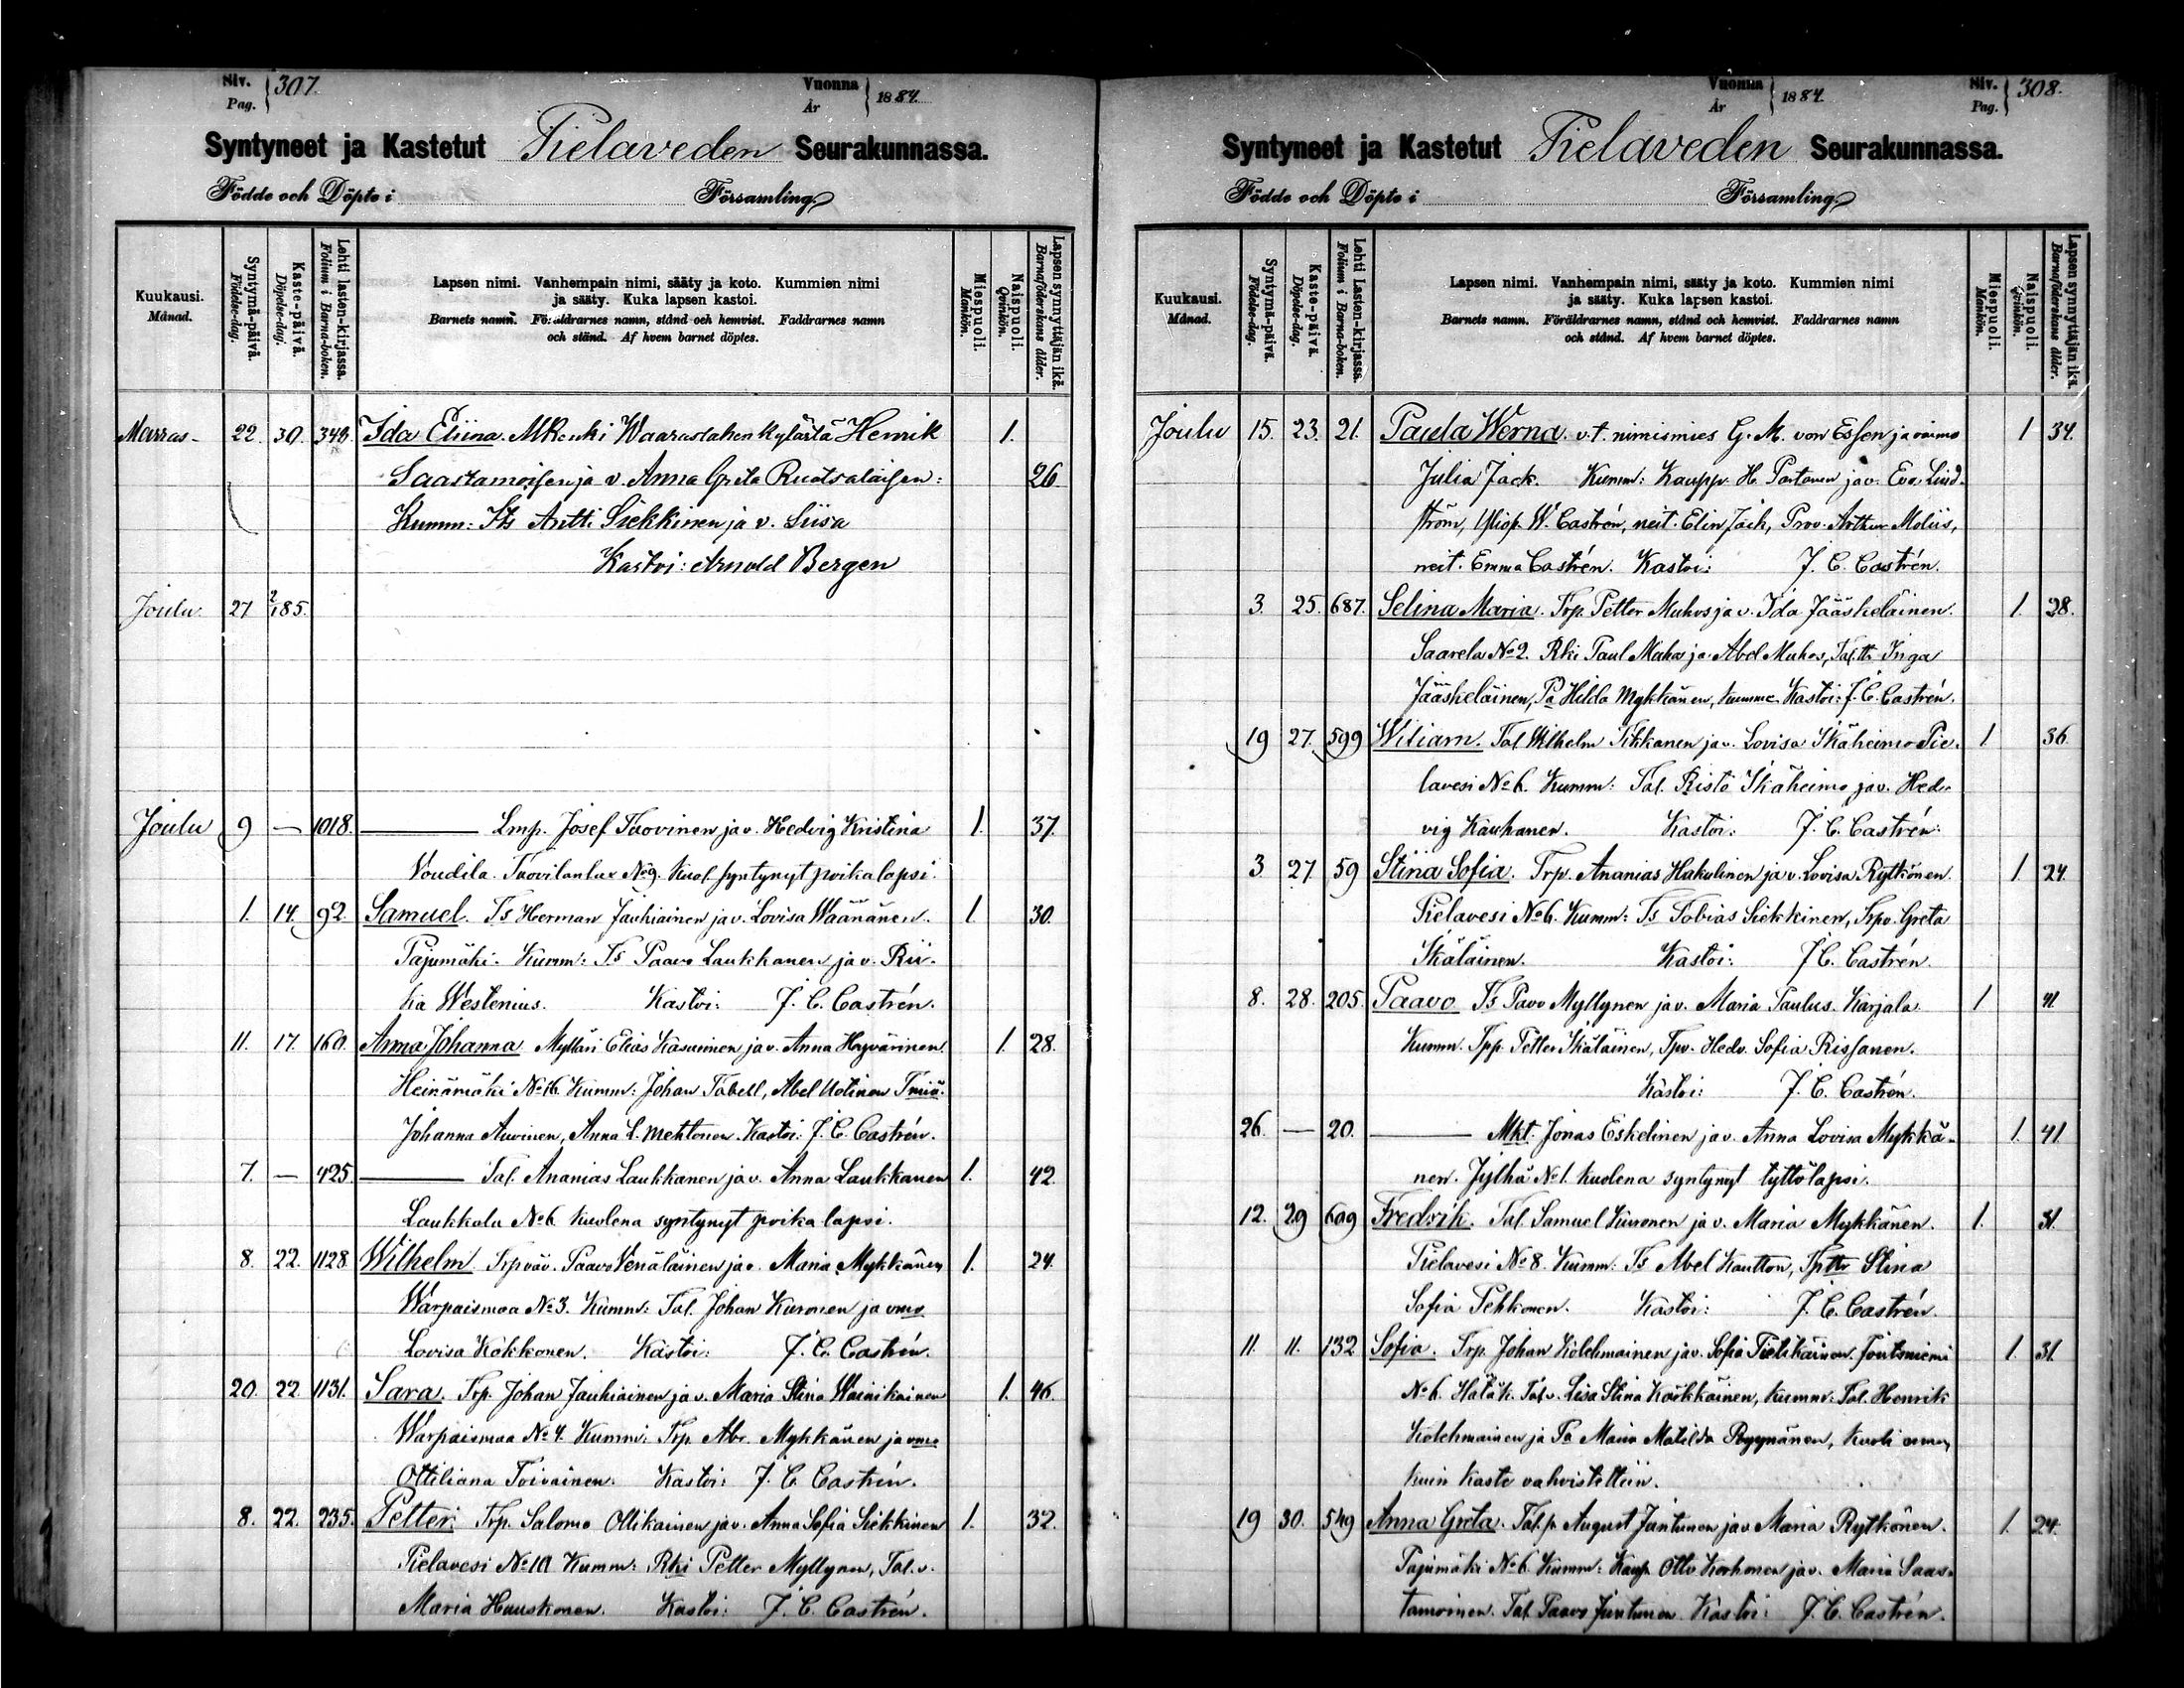 Siv. Pag. } 307.
Vuonna År } 1884.
Syntyneet ja Kastetut Pielaveden Seurakunnassa.
Födde och Döpte i Församling.
Kuukausi. Månad.
Syntymä-päivä. Födelse-dag.
Kaste-päivä. Döpelse-dag.
Lehti lasten-kirjassa. Folium i Barna-boken.
Lapsen nimi. Vanhempain nimi, sääty ja koto. Kummien nimi
ja sääty. Kuka lapsen kastoi.
Barnets namn. Föräldrarnes namn, stånd och hemvist. Faddrarnes namn
och stånd. Af hvem barnet döptes.
Miespuoli. Mankön.
Naispuoli. Qvinkön.
Lapsen synnyttäjän ikä. Barnaföderskans ålder.
Marras- 22. 30. 343. Ida Eliina. MRenki Waaraslahen kylästä Henrik 1.
Saastamoisen ja v. Anna Greta Ruotsalaisen: 26
Kumm: Its Antti Siekkinen ja v. Liisa
Kastoi: Arnold Bergen
Joulu. 27 2/1 85.
Joulu 9 — 1018. — Lmp. Josef Taovinen ja v. Hedvig Kristina 1. 37.
Voudila. Taovilanlax No 9. Kuol. syntynyt poikalapsi.
1. 14. 92. Samuel. Ts Herman Jauhiainen ja v. Lovisa Wäänänen. 1. 30.
Pajumäki. Kumm: Ts Paavo Laukkanen ja v. Rii-
ka Westenius. Kastoi: J. C. Castrén.
11. 17. 160. Anna Johanna Mylläri Elias Kasurinen ja v. Anna Hyvärinen. 1. 28.
Heinämäki No 16. Kumm: Johan Tabell, Abel Utinen
Johanna Auvinen, Anna L. Mehtonen. Kastoi: J. C. Castrén.
7. — 425. — Tal. Ananias Laukkanen ja v. Anna Laukkanen 1. 42.
Laukkala No 6. Kuolena syntynyt poika lapsi.
8. 22. 1128. Wilhelm Trp.väv. Paavo Venäläinen ja v. Maria Mykkänen 1. 24.
Warpaismaa No 3. Kumm: Tal. Johan Kuronen ja vmo
Lovisa Kokkonen. Kastoi: J. C. Castrén.
20. 22. 1131. Sara. Trp. Johan Jauhiainen ja v. Maria Stina Wainikainen 1. 46.
Warpaismaa No 4. Kumm: Trp. Abr. Mykkänen ja vmo
Ottiliana Toivainen. Kastoi: J. C. Castrén.
8. 22. 235. Petter. Trp. Salomo Ollikainen ja v. Anna Sofia Siekkinen 1. 32.
Pielavesi No 10 Kumm: Rki Petter Myllynen, Tal. v.
Maria Huuskonen. Kastoi: J. C. Castrén.
Vuonna År } 1884.
Siv. Pag. } 308.
Syntyneet ja Kastetut Pielaveden Seurakunnassa.
Födde och Döpte i Församling.
Kuukausi. Månad.
Syntymä-päivä. Födelse-dag.
Kaste-päivä. Döpelse-dag.
Lehti Lasten-kirjassa. Folium i Barna-boken.
Lapsen nimi. Vanhempain nimi, sääty ja koto. Kummien nimi
ja sääty. Kuka lapsen kastoi.
Barnets namn. Föräldrarnes namn, stånd och hemvist. Faddrarnes namn
och stånd. Af hvem barnet döptes.
Miespuoli. Mankön.
Naispuoli. Qvinkön.
Lapsen synnyttäjän ikä. Barnaföderskans ålder.
Joulu 15. 23. 21. Paula Werna. v.t. nimismies G. M. von Essen ja vaimo 1 34.
Julia Jack. Kumm: Kaupp. H. Partanen ja v. Eva Lind-
ström, Yliop. W. Castrén, neit. Elin Jack, Prov. Arthur Moliis,
neit. Emma Castrén. Kastoi: J. C. Castrén.
3. 25. 687. Selina Maria. Trp. Petter Muhos ja v. Ida Jääskeläinen. 1. 28.
Saarela No 2. Rki Paul Muhos ja Abel Muhos, Tal. tt. Inga
Jääskeläinen, Pa Hilda Mykkänen, kumme. Kastoi: J. C. Castrén.
19 27. 599 Wiliam. Tal. Wilhelm Tikkanen ja v. Lovisa Ikäheimo Pie- 1. 36.
lavesi No 6. Kumm: Tal. Risto Ikäheimo ja v. Hed-
vig Kauhanen. Kastoi: J. C. Castrén.
3. 27. 59 Stina Sofia. Trp. Ananias Hakulinen ja v. Lovisa Rytkönen. 1. 24.
Pielavesi No 6. Kumm: Ts Tobias Siekkinen, Trpv. Greta
Ikäläinen. Kastoi: J. C. Castrén.
8. 28. 205. Paavo Ts Pavo Myllynen ja v. Maria Paulus. Karjala 1 41.
Kumm. Tpp. Petter Ikäläinen, Tpv. Hedv. Sofia Rissanen.
Kastoi: J. C. Castrén.
26. — 20. — Mkt. Jonas Eskelinen ja v. Anna Lovisa Mykkä- 1. 41
nen. Jylhä No 1. kuolena syntynyt tyttölapsi.
12. 29 609 Fredrik. Tal. Samuel Kuronen ja v. Maria Mykkänen. 1. 31.
Pielavesi No 8. Kumm: Ts Abel Kautton, Tptr Stina
Sofia Pehkonen. Kastoi: J. C. Castrén.
11. 11. 132 Sofia. Trp. Johan Kolehmainen ja v. Sofia Pielikäinen. Joutsniemi 1. 31.
No 6. Hätäk. Tal. v. Lisa Stina Karkkäinen, kumm: Tal. Henrik
Kolehmainen ja Pa Maria Matilda Ryynänen, kuoli ennen
kuin kaste vahvistettiin.
19 30. 549 Anna Greta. Tal. p. August Jäntunen ja v. Maria Rytkönen. 1. 24.
Pajumäki No 6. Kumm: Kaup. Otto Korhonen ja v. Maria Saas-
tamoinen. Tal. Paavo Juntunen Kastoi: J. C. Castrén.